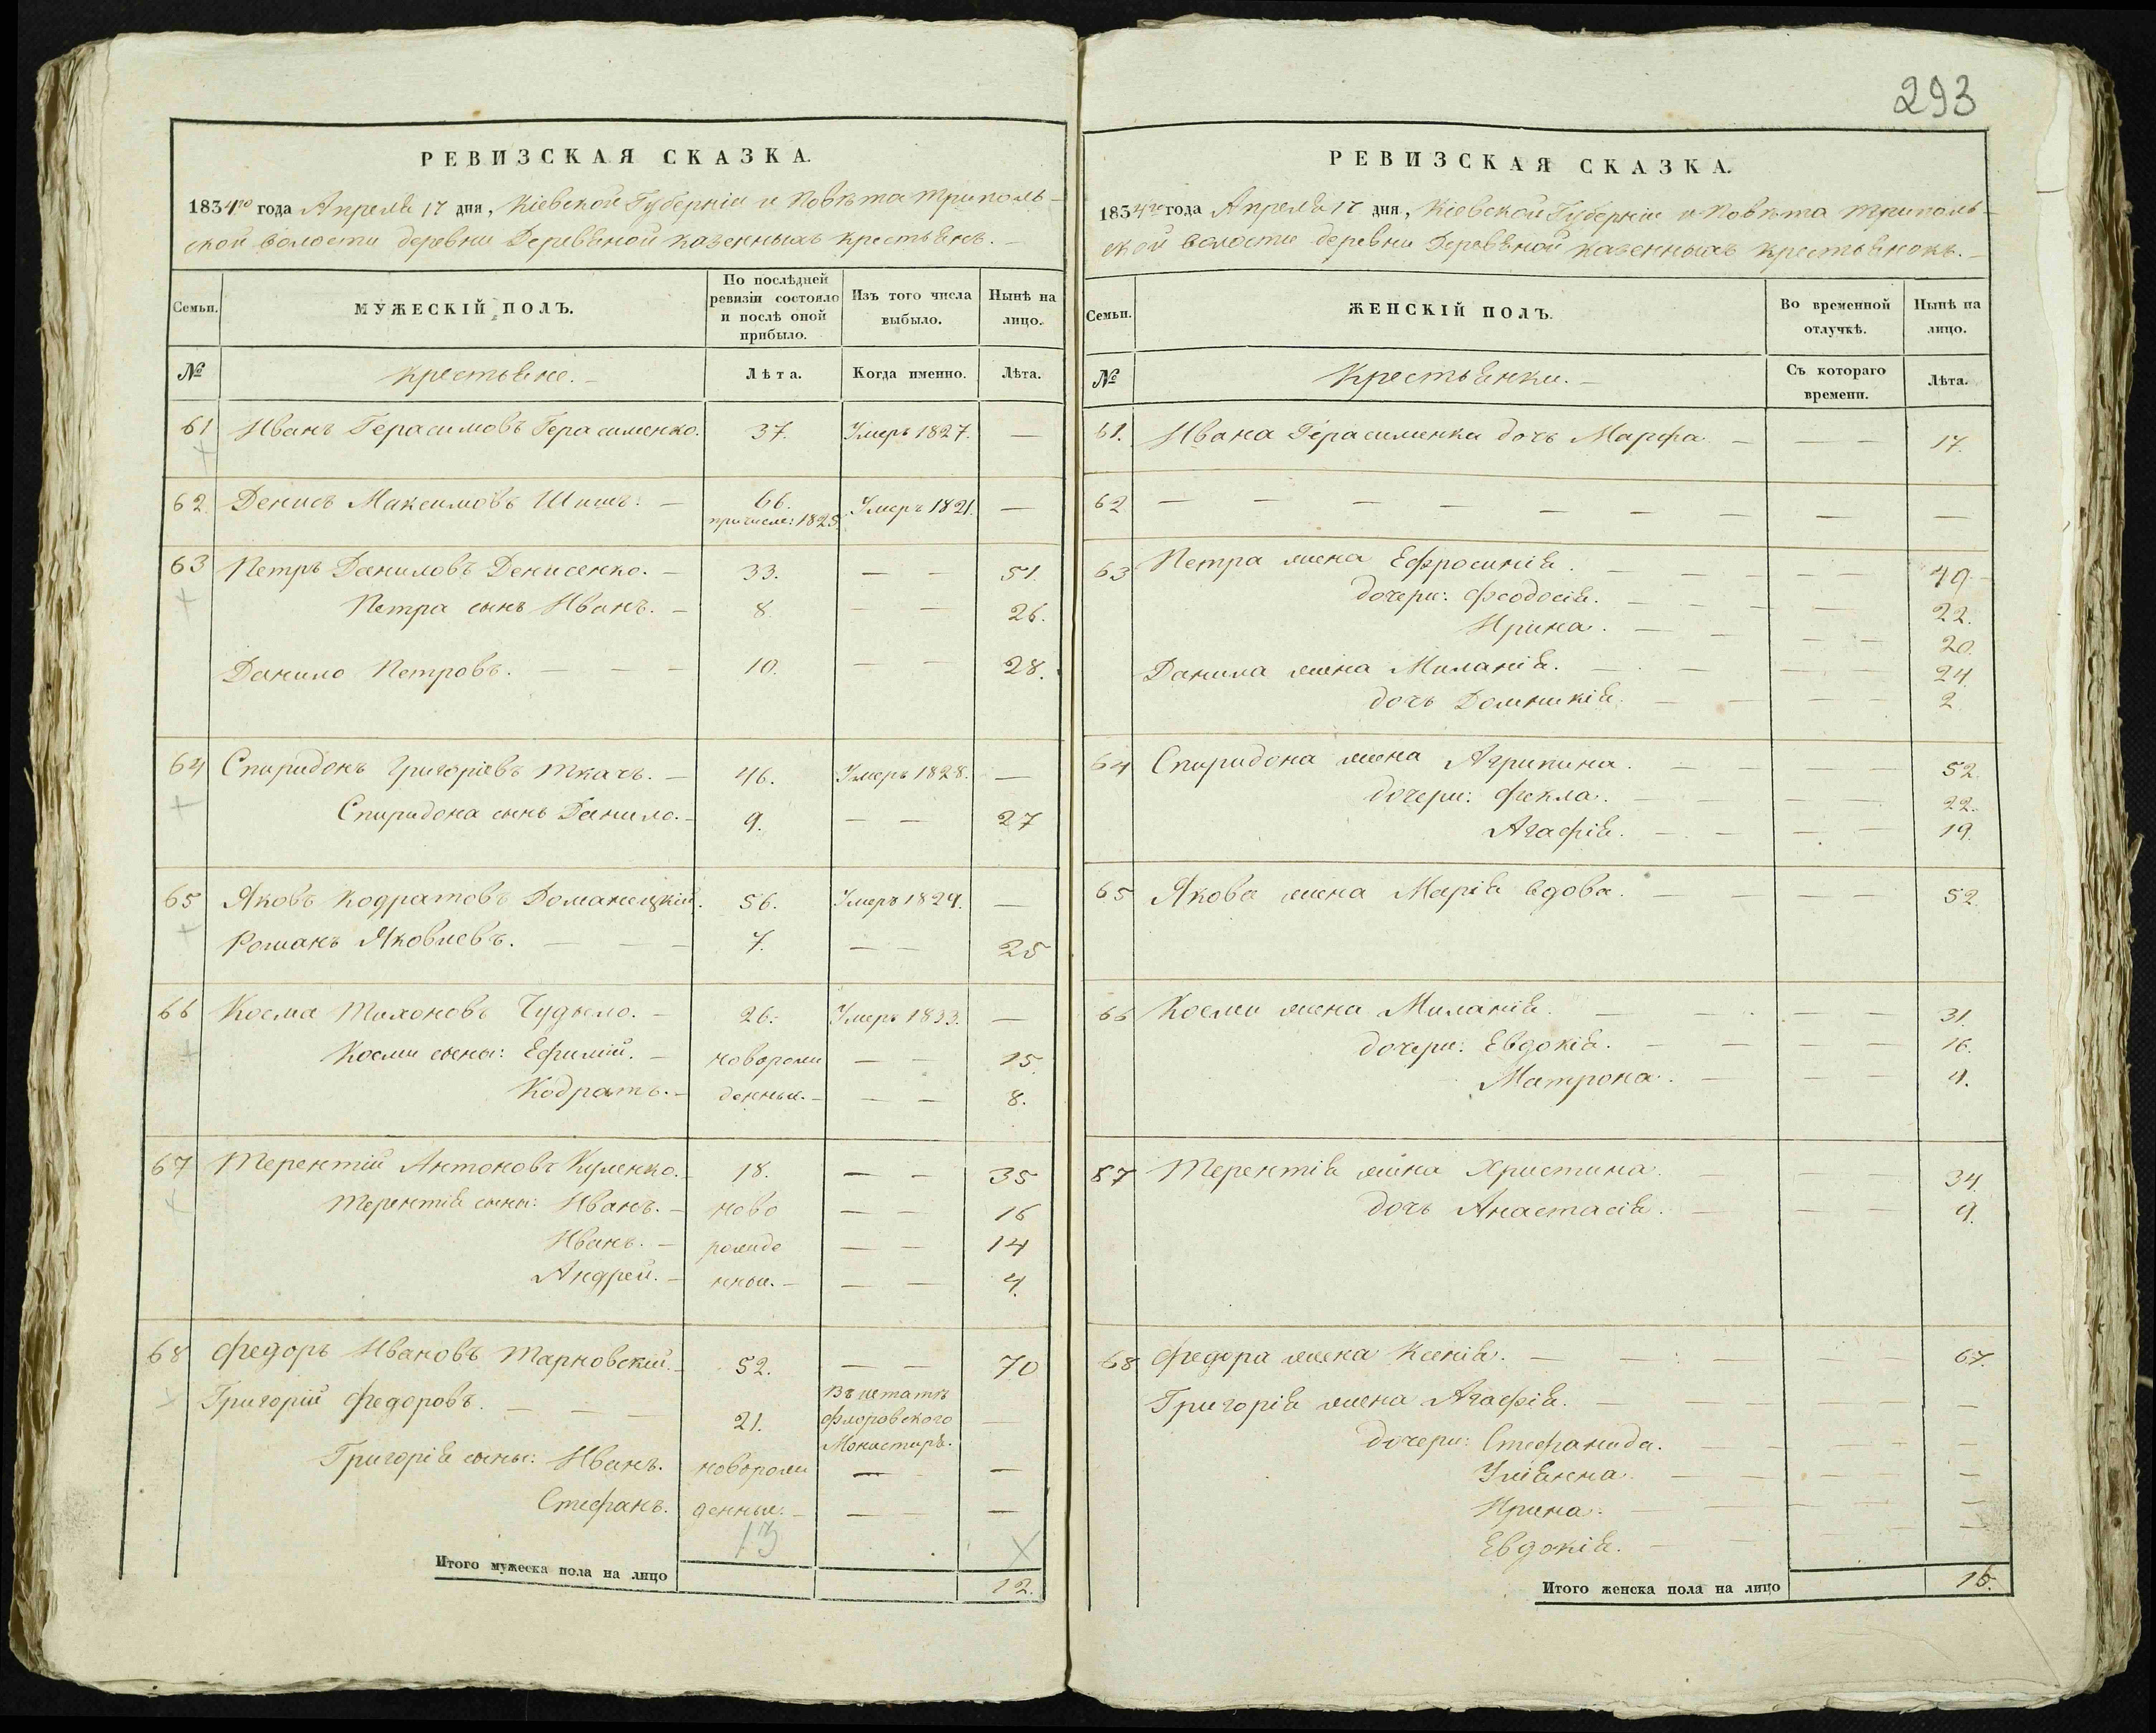 293
РЕВИЗСКАЯ СКАЗКА.
1834го года Апреля 17 дня, Кіевской Губерніи и Повѣта Триполь-
ской волости деревни Деревяной казенныхъ крестьянъ.
Семьи. МУЖЕСКІЙ ПОЛЪ. По послѣдней ревизіи состояло и послѣ оной прибыло. Изъ того числа выбыло. Нынѣ на лицо.
№ Крестьяне. Лѣта. Когда именно. Лѣта.
61 Иванъ Герасимовъ Герасименко. 37. Умеръ 1827. —
62. Денисъ Максимовъ Шишъ. — 66. Умеръ 1821. —
причисле: 1825
63 Петръ Даниловъ Денисенко. — 33. — — 51.
Петра сынъ Иванъ. — 8. — — 26.
Данило Петровъ. — — — 10. — — 28.
64 Спиридонъ Григоріевъ Ткачъ. — 46. Умеръ 1828. —
Спиридона сынъ Данило. — 9. — — 27
65 Яковъ Кодратовъ Доманецкій. 56. Умеръ 1829. —
Романъ Яковлевъ. — — — 7. — — 25
66 Косма Тихоновъ Чудило. — 26. Умеръ 1833. —
Косми сыны: Ефимій. — новорож — — 15.
Кодратъ. — денныи. — — — 8.
67 Терентій Антоновъ Куленко. 18. — — 35
Терентія сыны: Иванъ. — ново — — 16
Иванъ. — рожде — — 14
Андрей. — нныи. — — — 4.
68 Федоръ Ивановъ Тарновскій. 52. — — 70
Григорій Федоровъ. — — — 21. Въ штатѣ Флоровского Монастиря. —
Григорія сыны: Иванъ. новорож — —
Стефанъ. денныи. — — — —
13
Итого мужеска пола на лицо 12.
РЕВИЗСКАЯ СКАЗКА.
1834го года Апреля 17 дня, Кіевской Губерніи и Повѣта Триполь-
ской волости деревни Деревяной казенныхъ крестьянокъ.
Семьи. ЖЕНСКІЙ ПОЛЪ. Во временной отлучкѣ. Нынѣ на лицо.
№ Крестьянки. Съ котораго времени. Лѣта.
61. Ивана Герасименка дочь Марфа — — — 17.
62 — — — — — — — —
63 Петра жена Ефросинія. — — — — 49
дочери: Феодосія. — — — — 22.
Ирина. — — — — 20.
Данила жена Миланія. — — — — 24
дочь Домникія. — — — — 2
64 Спиридона жена Агрипина. — — — — 52.
дочери: Фекла. — — — — 22.
Агафія. — — — — 19.
65 Якова жена Марія вдова. — — — — 52.
66 Косми жена Миланія. — — — — 31.
дочери: Евдокія. — — — — 16.
Матрона. — — — 4.
67 Терентія жена Христина. — — — 34
дочь Анастасія. — — — 9.
68 Федора жена Ксенія. — — — — — 67.
Григорія жена Агафія. — — — — — —
дочери: Стефанида. — — — — —
Уліянна. — — — — —
Ирина. — — — — —
Евдокія. — — — — —
Итого женска пола на лицо 16.